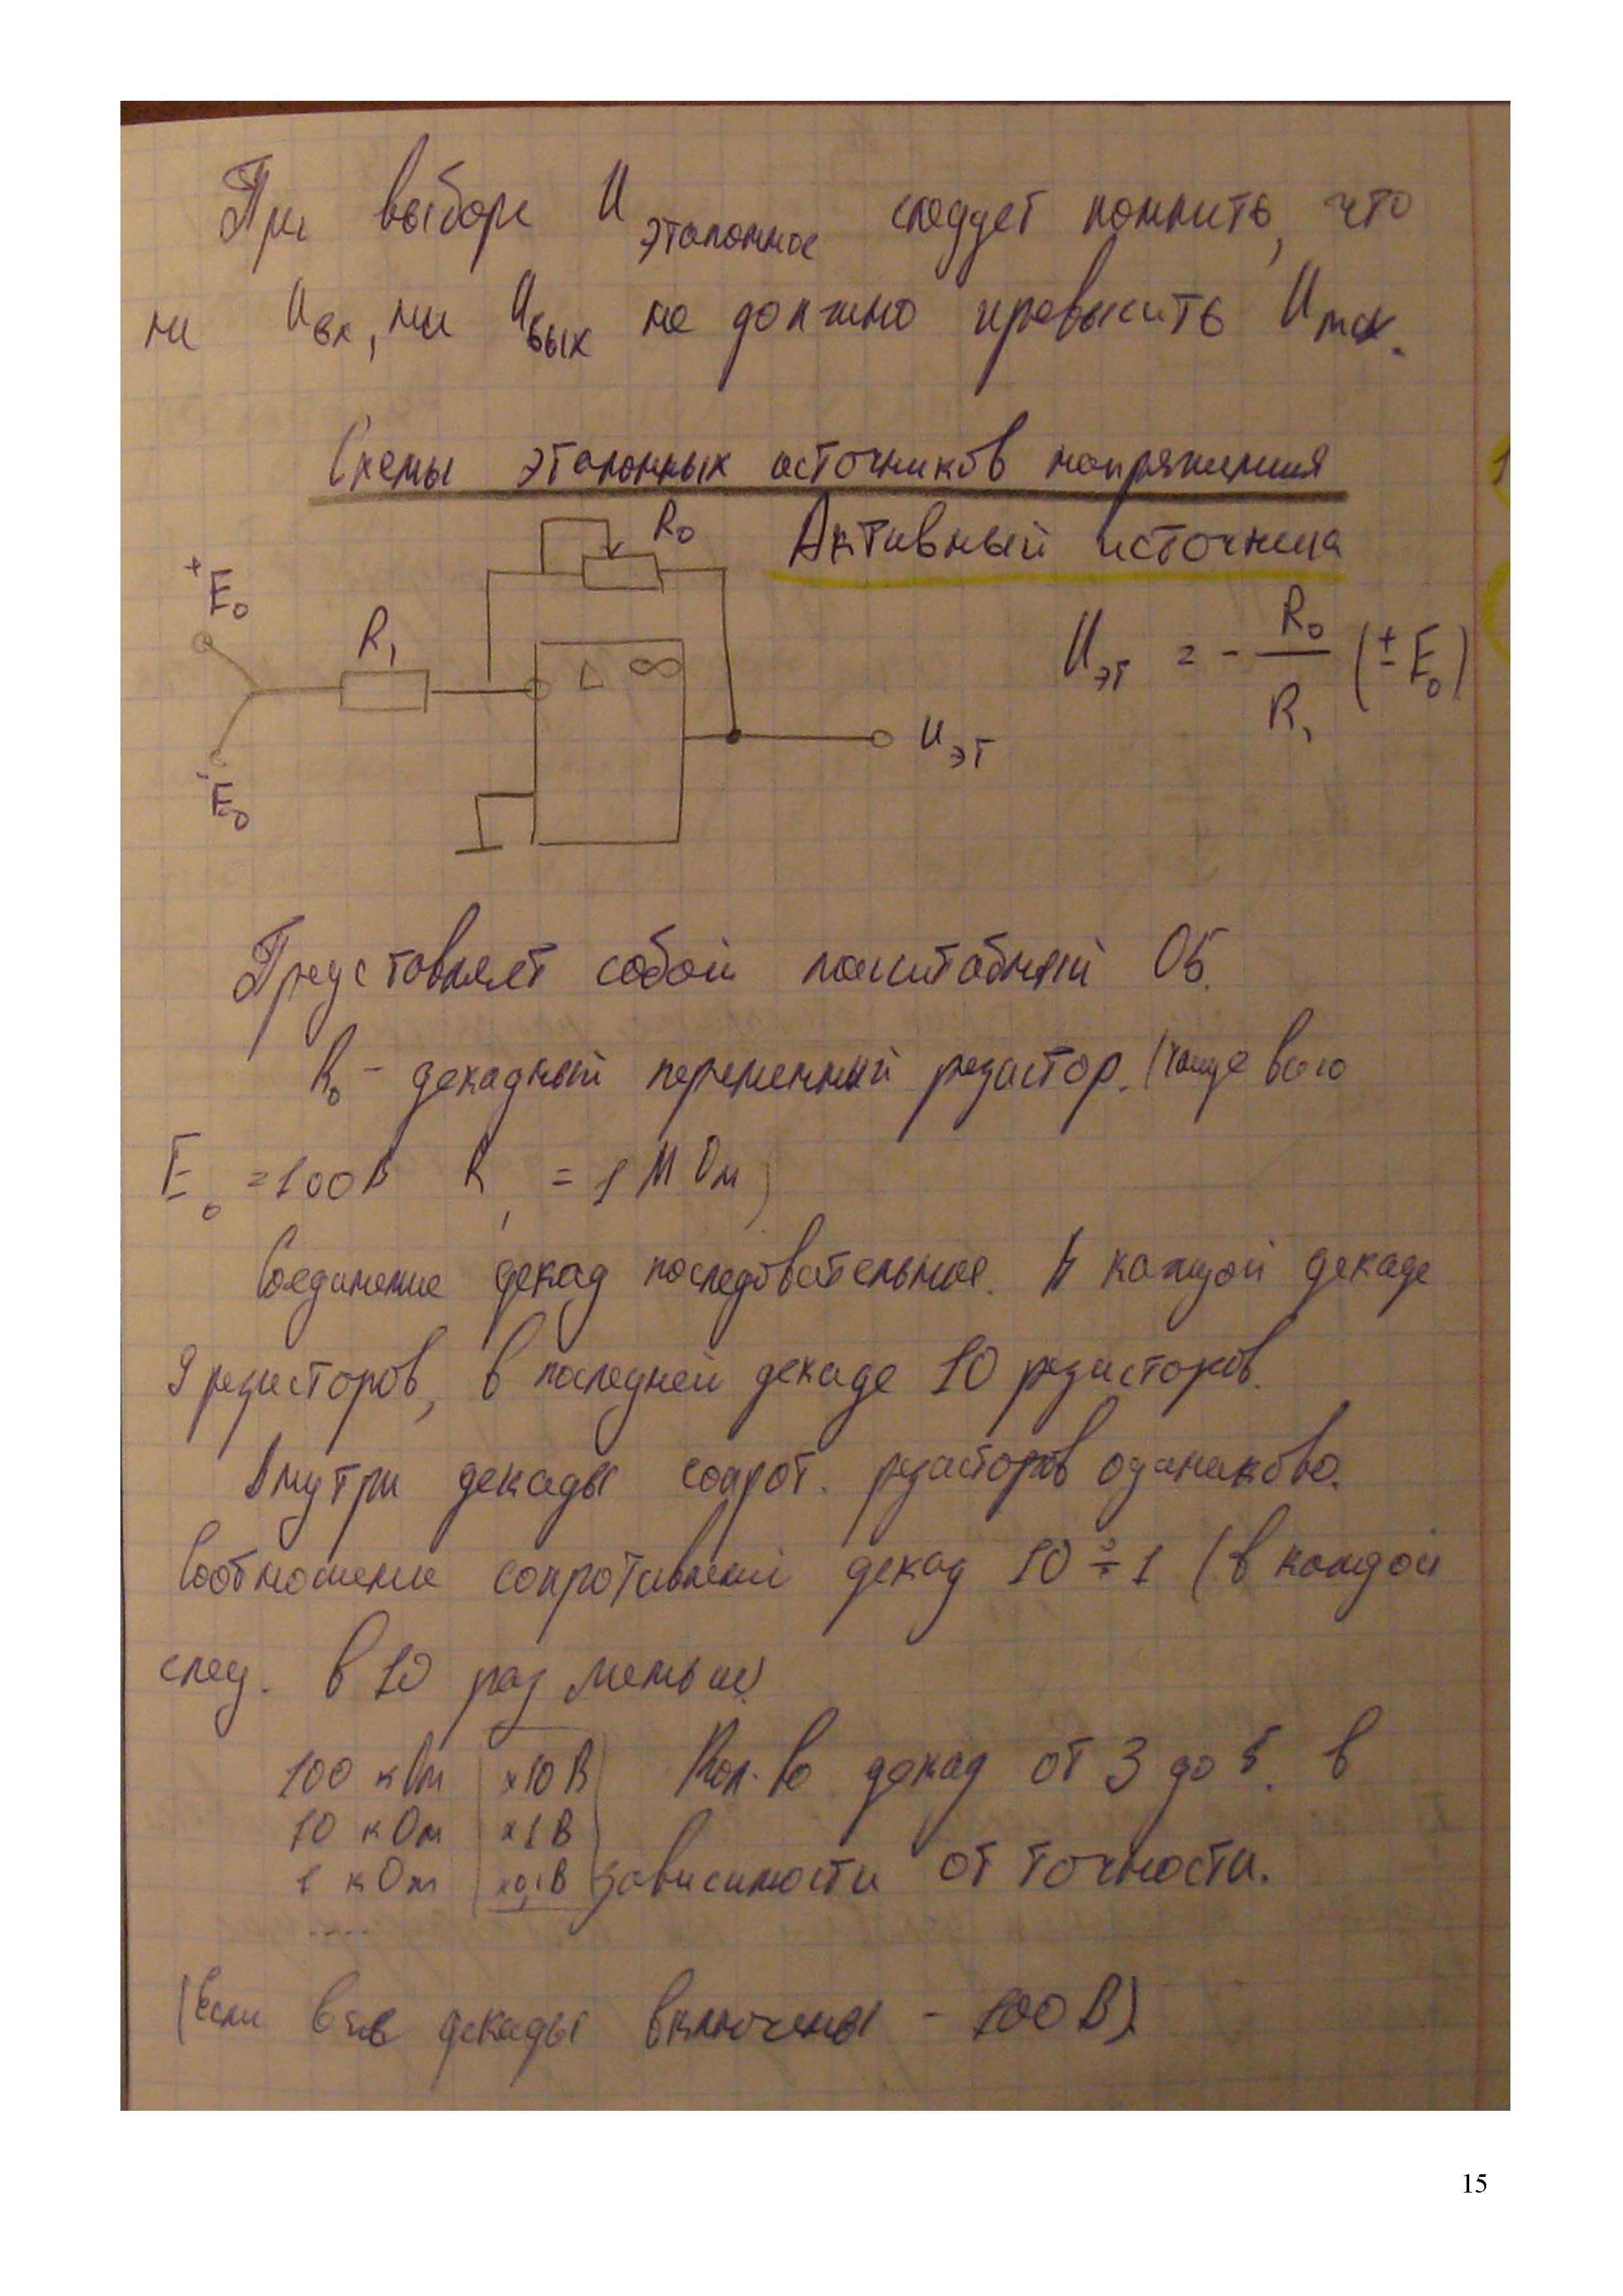 При выборе U эталонное следует помнить, что
ни Uвх, ни Uвых не должно превысить Umax.
Схемы эталонных источников напряжения
R₀ Активный источник
+E₀
R₁
Uэт = - R₀/R₁ (±E₀)
▷ ∞
Uэт
-E₀
Представляет собой масштабный ОБ.
R₀ - декадный переменный резистор. (чаще всего
E₀ = 100В R₁ = 1 МОм)
Соединение декад последовательное. В каждой декаде
9 резисторов, в последней декаде 10 резисторов.
Внутри декады сопрот. резисторов одинаково.
Соотношение сопротивлений декад 10 ÷ 1 (в каждой
след. в 10 раз меньше)
100 кОм x10В Кол-во декад от 3 до 5. в
10 кОм x1В
1 кОм x0,1В зависимости от точности.
....
(Если все декады включены - 100 В)
15